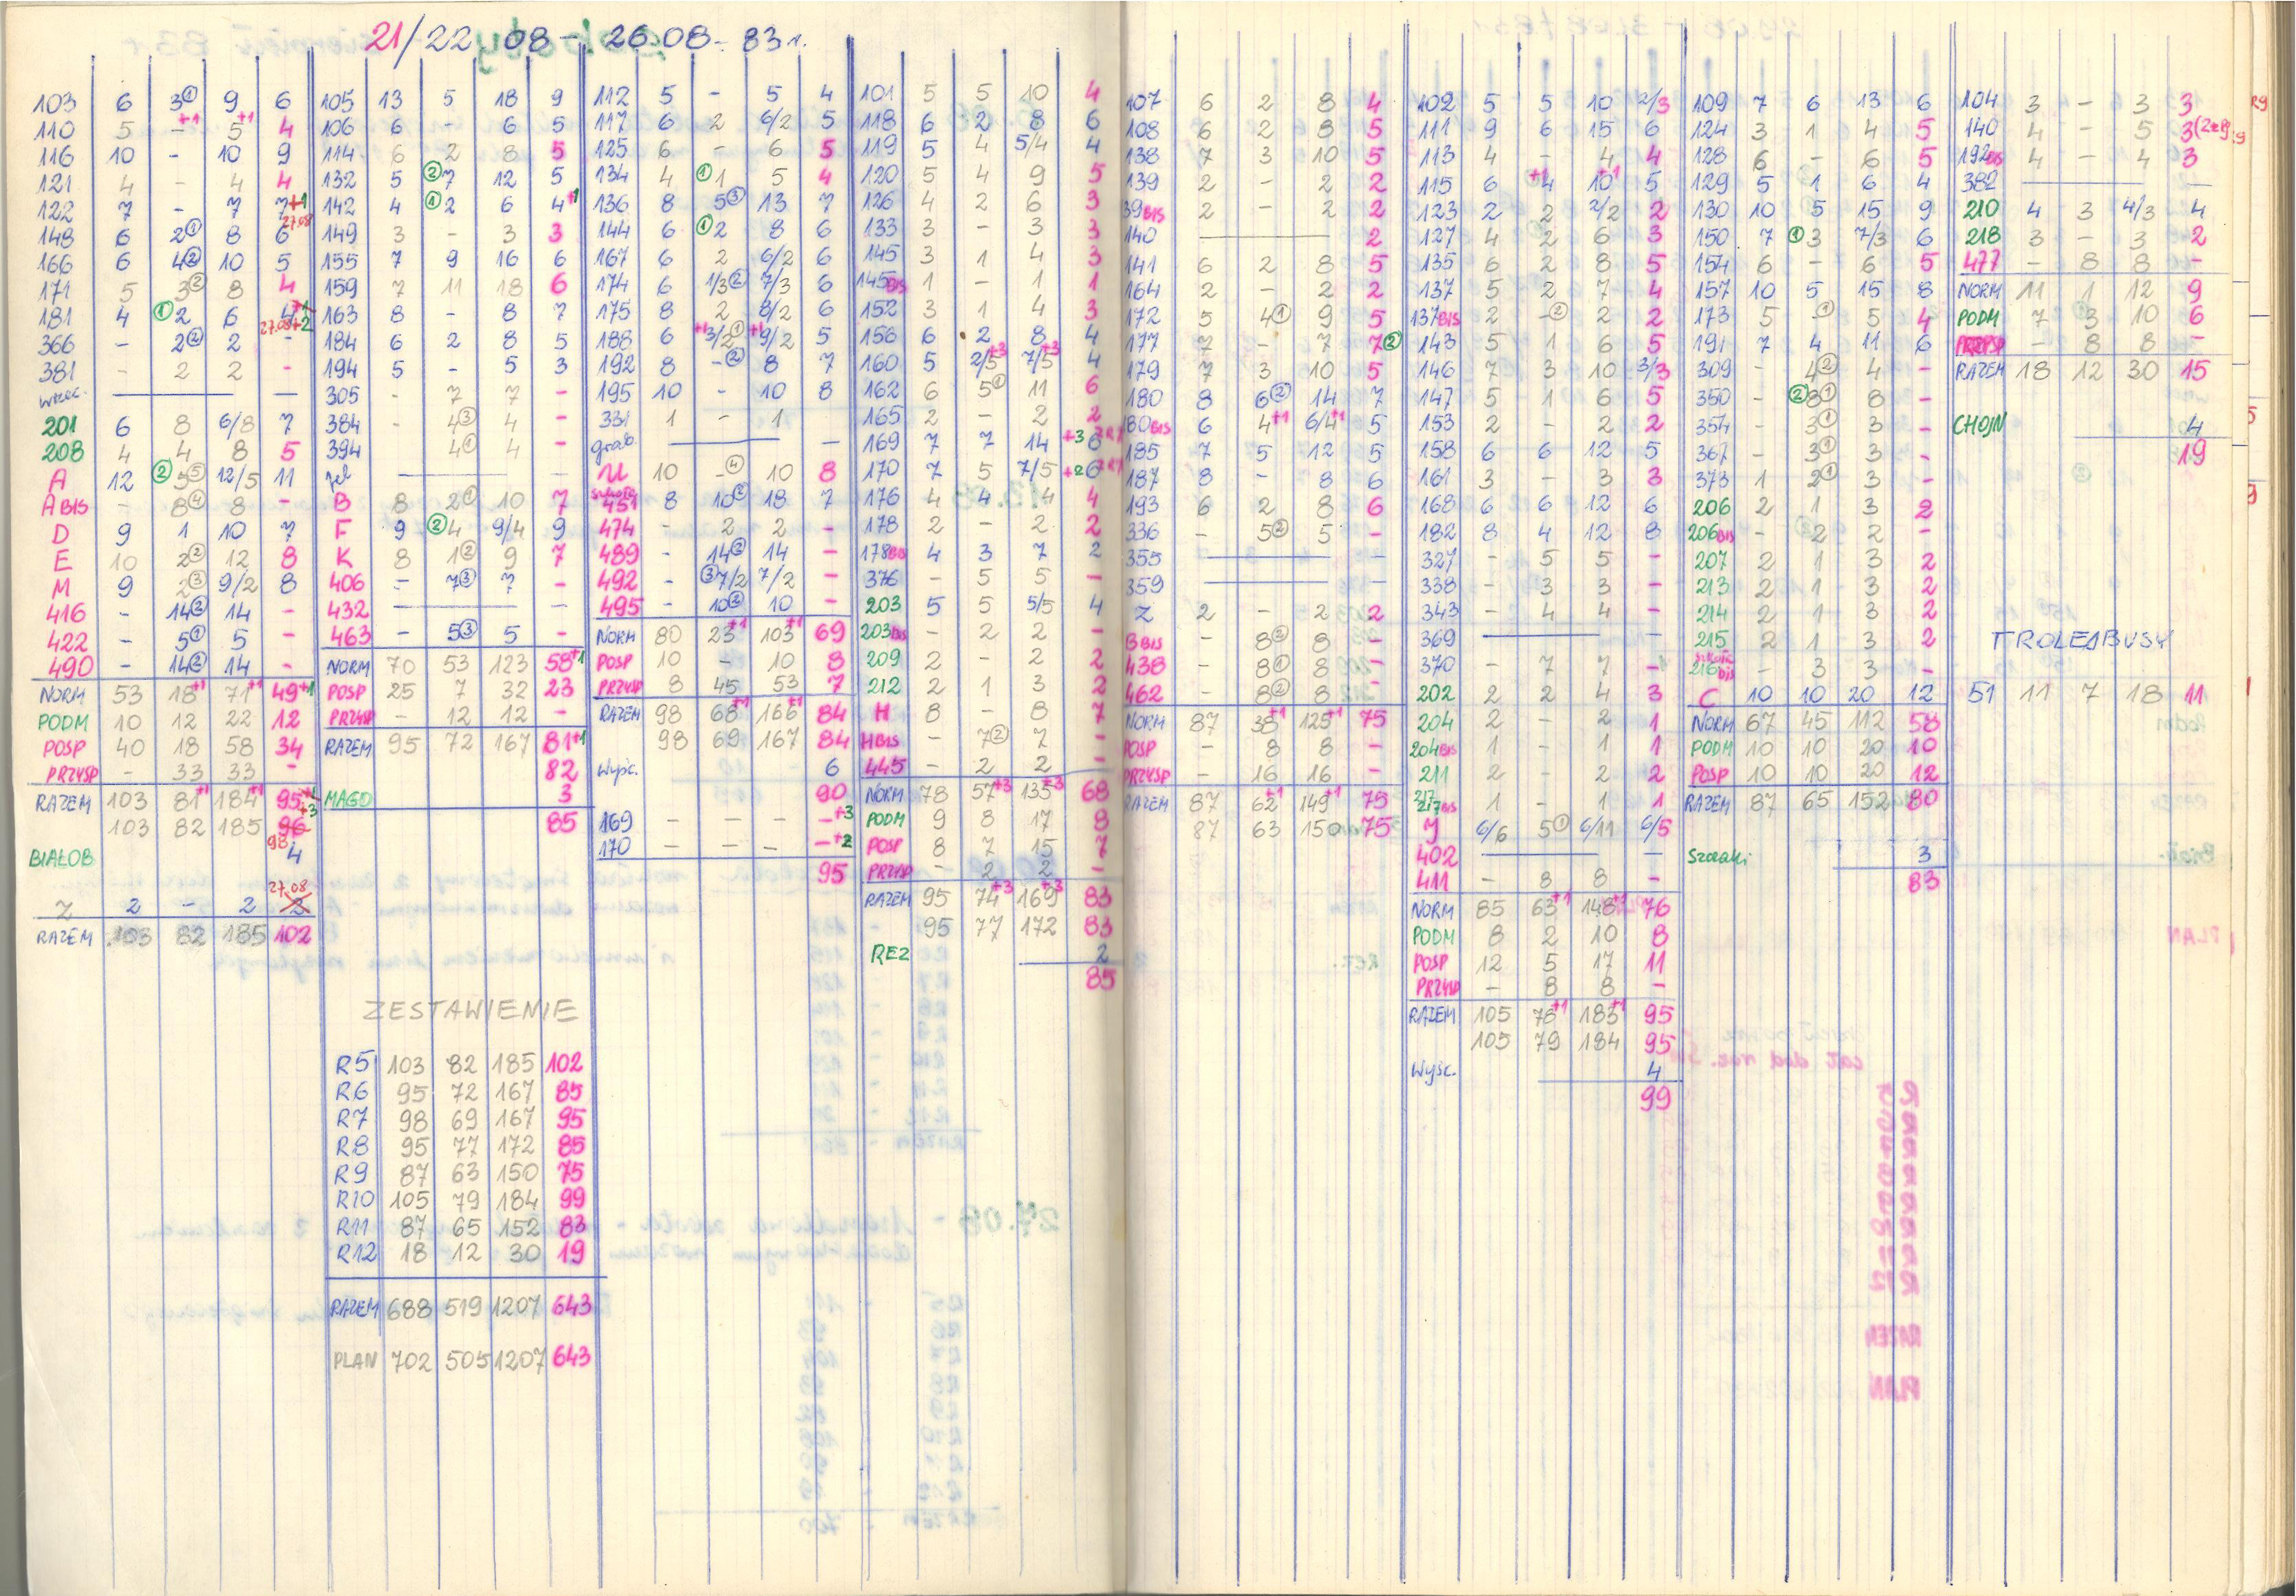 21/22 08 - 26.08. 83 r.
103 6 3① 9 6
110 5 -+1 5+1 4
116 10 - 10 9
121 4 - 4 4
122 7 - 7 7+1
27.08
148 6 2① 8 6
166 6 4② 10 5
171 5 3② 8 4
181 4 ①2 6 4+1
27.08+2
366 - 2② 2 -
381 - 2 2 -
201 6 8 6/8 7
208 4 4 8 5
A 12 ②5⑤ 12/5 11
A BIS - 8④ 8 -
D 9 1 10 7
E 10 2② 12 8
M 9 2③ 9/2 8
416 - 14② 14 -
422 - 5① 5 -
490 - 14② 14 -
NORM 53 18+1 71+1 49+1
PODM 10 12 22 12
POSP 40 18 58 34
PRZYSP - 33 33 -
RAZEM 103 81+1 184+1 95+1
+3
103 82 185 96
98
BIAŁOB 4
27.08
Z 2 - 2 2
RAZEM 103 82 185 102
105 13 5 18 9
106 6 - 6 5
114 6 2 8 5
132 5 ②7 12 5
142 4 ①2 6 4+1
149 3 - 3 3
155 7 9 16 6
159 7 11 18 6
163 8 - 8 7
184 6 2 8 5
194 5 - 5 3
305 - 7 7 -
384 - 4③ 4 -
394 - 4① 4 -
B 8 2① 10 7
F 9 ②4 9/4 9
K 8 1② 9 7
406 - 7③ 7 -
432 -
463 - 5③ 5 -
NORM 70 53 123 58+1
POSP 25 7 32 23
PRZYSP - 12 12 -
RAZEM 95 72 167 81+1
82
MAGD 3
85
112 5 - 5 4
117 6 2 6/2 5
125 6 - 6 5
134 4 ①1 5 4
136 8 5③ 13 7
144 6 ①2 8 6
167 6 2 6/2 6
174 6 1/3② 7/3 6
175 8 2 8/2 6
188 6 +1 3/2① +1 9/2 5
192 8 -② 8 7
195 10 - 10 8
331 1 - 1
grab. -
U 10 -④ 10 8
451 8 10② 18 7
474 - 2 2 -
489 - 14② 14 -
492 - ③7/2 7/2 -
495 - 10② 10 -
NORM 80 23+1 103+1 69
POSP 10 - 10 8
PRZYSP 8 45 53 7
RAZEM 98 68+1 166+1 84
98 69 167 84
Wyśc. 6
90
169 - - - -+3
170 - - - -+2
95
101 5 5 10 4
118 6 2 8 6
119 5 4 5/4 4
120 5 4 9 5
126 4 2 6 3
133 3 - 3 3
145 3 1 4 3
145BIS 1 - 1 1
152 3 1 4 3
156 6 2 8 4
160 5 2/5+3 7/5+3 4
162 6 5① 11 6
165 2 - 2 2
169 7 7 14 +3 6
170 7 5 7/5 +2 6
176 4 4 4 4
178 2 - 2 2
178BIS 4 3 7 2
376 - 5 5 -
203 5 5 5/5 4
203BIS - 2 2 -
209 2 - 2 2
212 2 1 3 2
H 8 - 8 7
H BIS - 7② 7 -
445 - 2 2 -
NORM 78 57+3 135+3 68
PODM 9 8 17 8
POSP 8 7 15 7
PRZYSP - 2 2 -
RAZEM 95 74+3 169+3 83
95 77 172 83
REZ 2
85
ZESTAWIENIE
R5 103 82 185 102
R6 95 72 167 85
R7 98 69 167 95
R8 95 77 172 85
R9 87 63 150 75
R10 105 79 184 99
R11 87 65 152 83
R12 18 12 30 19
RAZEM 688 519 1207 643
PLAN 702 505 1207 643
107 6 2 8 4
108 6 2 8 5
138 7 3 10 5
139 2 - 2 2
39BIS 2 - 2 2
140 - 2
141 6 2 8 5
164 2 - 2 2
172 5 4① 9 5
177 7 - 7 7②
179 7 3 10 5
180 8 6② 14 7
80BIS 6 4+1 6/4+1 5
185 7 5 12 5
187 8 - 8 6
193 6 2 8 6
336 - 5② 5 -
355 -
359 -
Z 2 - 2 2
B BIS - 8② 8 -
438 - 8① 8 -
462 - 8② 8 -
NORM 87 38+1 125+1 75
POSP - 8 8 -
PRZYSP - 16 16 -
RAZEM 87 62+1 149+1 75
87 63 150 75
102 5 5 10 2/3
111 9 6 15 6
113 4 - 4 4
115 6 +1 4 10+1 5
123 2 2 2/2 2
127 4 2 6 3
135 6 2 8 5
137 5 2 7 4
137BIS 2 -② 2 2
143 5 1 6 5
146 7 3 10 3/3
147 5 1 6 5
153 2 - 2 2
158 6 6 12 5
161 3 - 3 3
168 6 6 12 6
182 8 4 12 8
327 - 5 5 -
338 - 3 3 -
343 - 4 4 -
369 -
370 - 7 7 -
202 2 2 4 3
204 2 - 2 1
204BIS 1 - 1 1
211 2 - 2 2
217BIS 1 - 1 1
Y 6/6 5① 6/11 6/5
402 -
411 - 8 8 -
NORM 85 63+1 148+1 76
PODM 8 2 10 8
POSP 12 5 17 11
PRZYSP - 8 8 -
RAZEM 105 78+1 183+1 95
105 79 184 95
Wyśc. 4
99
109 7 6 13 6
124 3 1 4 5
128 6 - 6 5
129 5 1 6 4
130 10 5 15 9
150 7 ①3 7/3 6
154 6 - 6 5
157 10 5 15 8
173 5 -① 5 4
191 7 4 11 6
309 - 4② 4 -
350 - ②8① 8 -
354 - 3① 3 -
367 - 3① 3 -
373 1 2① 3 -
206 2 1 3 2
206BIS - 2 2 -
207 2 1 3 2
213 2 1 3 2
214 2 1 3 2
215 2 1 3 2
216BIS - 3 3 -
C 10 10 20 12
NORM 67 45 112 58
PODM 10 10 20 10
POSP 10 10 20 12
RAZEM 87 65 152 80
Szczaki 3
83
104 3 - 3 3
140 4 - 5 3
192BIS 4 - 4 3
382 -
210 4 3 4/3 4
218 3 - 3 2
477 - 8 8 -
NORM 11 1 12 9
PODM 7 3 10 6
PRZYSP - 8 8 -
RAZEM 18 12 30 15
CHOJN 4
19
TROLEJBUSY
51 11 7 18 11